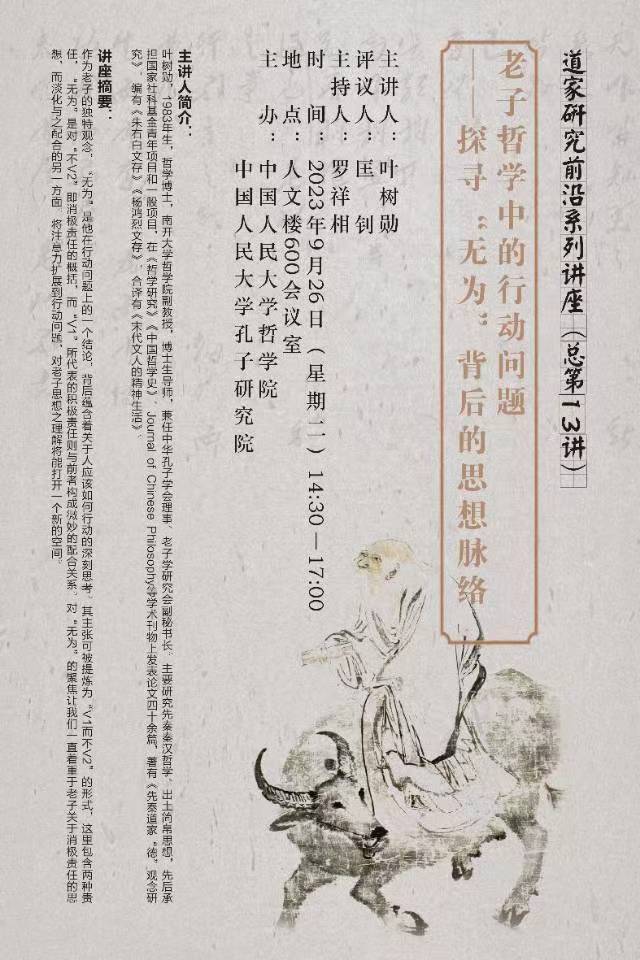 道家研究前沿系列讲座（总第13讲）
老子哲学中的行动问题
——探寻“无为”背后的思想脉络
主讲人：叶树勋
评议人：匡钊
主持人：罗祥相
时间：2023年9月26日（星期二）14:30—17:00
地点：人文楼600会议室
主办：中国人民大学哲学院
中国人民大学孔子研究院
主讲人简介：
叶树勋，1983年生，哲学博士，南开大学哲学院副教授，博士生导师，兼任中华孔子学会理事、老子学研究会副秘书长。主要研究先秦秦汉哲学、出土简帛思想，先后承
担国家社科基金青年项目和一般项目，在《哲学研究》《中国哲学史》、Journal of Chinese Philosophy等学术刊物上发表论文四十余篇，著有《先秦道家“德”观念研
究》，编有《朱右白文存》《杨鸿烈文存》，合译有《宋代文人的精神生活》。
讲座摘要：
作为老子的独特观念，“无为”是他在行动问题上的一个结论，背后蕴含着关于人应该如何行动的深刻思考。其主张可被提炼为“V1而不V2”的形式，这里包含两种责
任，“无为”是对“不V2”即消极责任的概括，而“V1”所代表的积极责任则与前者构成微妙的配合关系。对“无为”的聚焦让我们一直着重于老子关于消极责任的思
想，而淡化与之配合的另一方面。将注意力扩展到行动问题，对老子思想之理解将能打开一个新的空间。